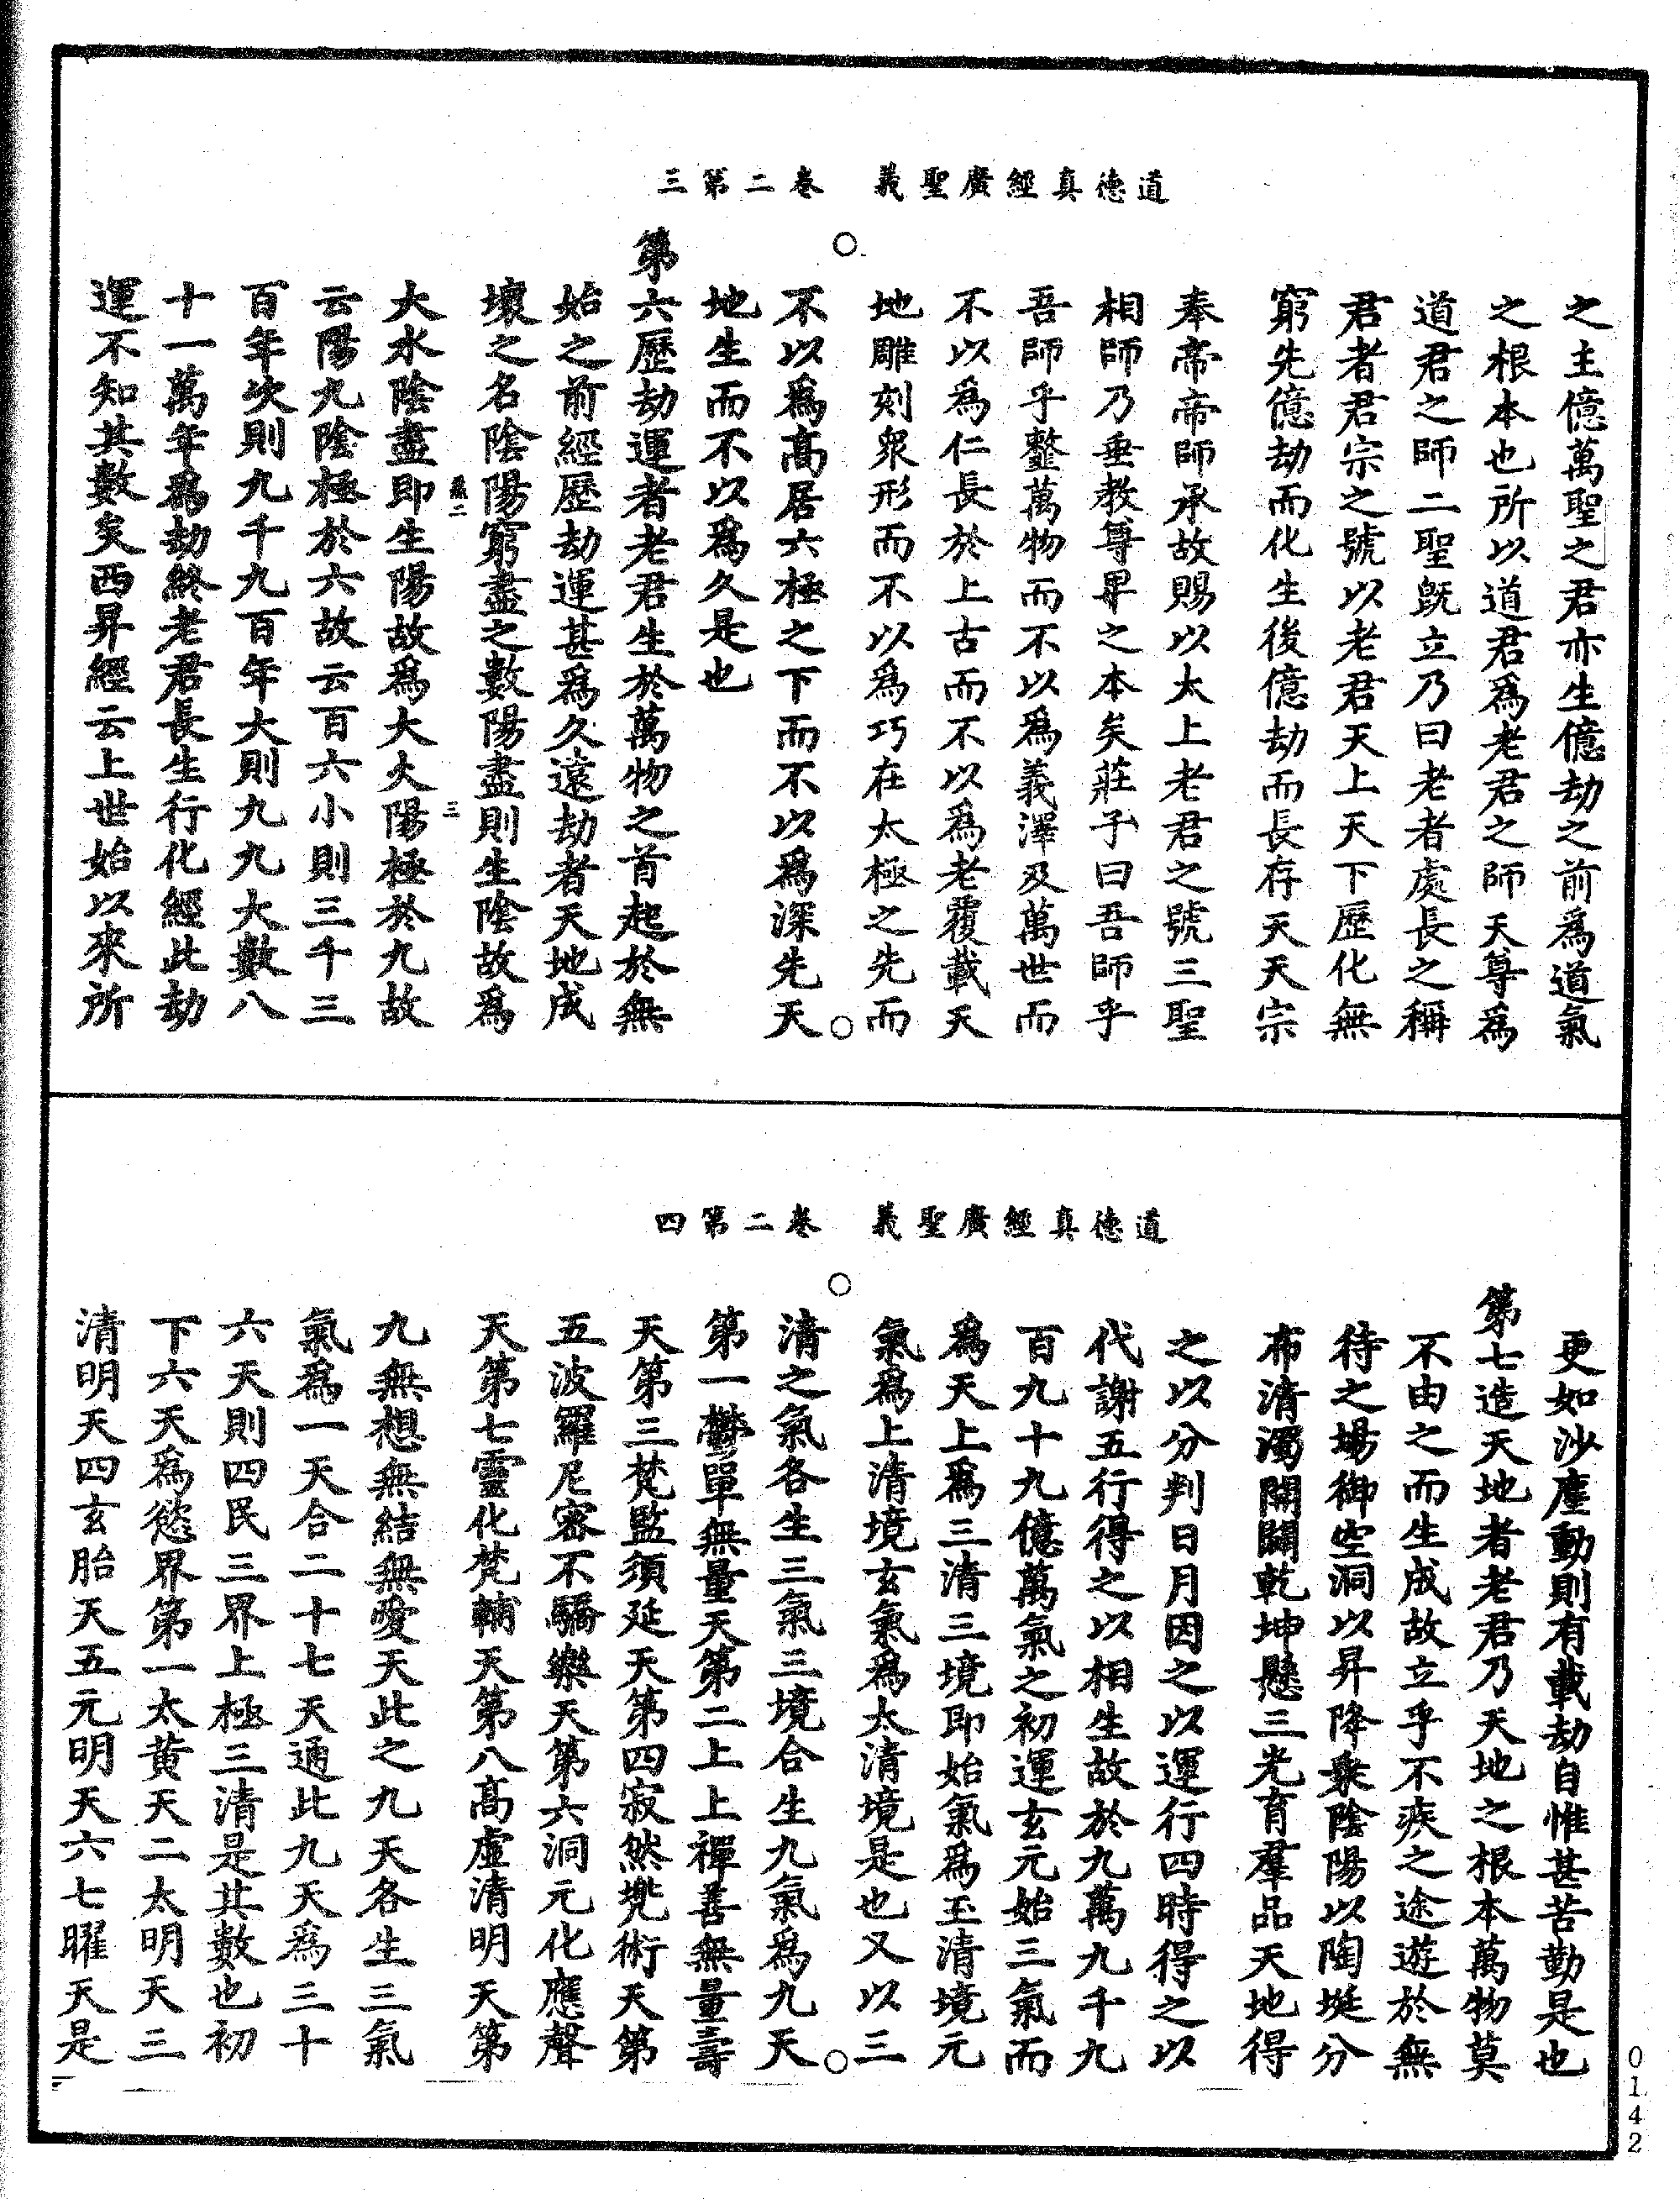 道德真經廣聖義　卷二第三
之主億萬聖之君亦生億劫之前爲道氣
之根本也所以道君爲老君之師天尊爲
道君之師二聖旣立乃曰老者處長之稱
君者君宗之號以老君天上天下歷化無
窮先億劫而化生後億劫而長存天天宗
奉帝帝師承故賜以太上老君之號三聖
相師乃垂教尊卑之本矣莊子曰吾師乎
吾師乎鏊萬物而不以爲義澤及萬世而
不以爲仁長於上古而不以爲老覆載天
地雕刻衆形而不以爲巧在太極之先而
不以爲高居六極之下而不以爲深先天
地生而不以爲久是也
第六歷劫運者老君生於萬物之首起於無
始之前經歷劫運甚爲久遠劫者天地成
壞之名陰陽窮盡之數陽盡則生陰故爲
大水陰盡即生陽故爲大火陽極於九故
云陽九陰極於六故云百六小則三千三
百年次則九千九百年大則九九大數八
十一萬年爲劫終老君長生行化經此劫
運不知其數矣西昇經云上世始以來所
道德真經廣聖義　卷二第四
更如沙塵動則有載劫自惟甚苦勤是也
第七造天地者老君乃天地之根本萬物莫
不由之而生成故立乎不疾之途遊於無
待之場御空洞以昇降乘陰陽以陶埏分
布清濁開闢乾坤懸三光育羣品天地得
之以分判日月因之以運行四時得之以
代謝五行得之以相生故於九萬九千九
百九十九億萬氣之初運玄元始三氣而
爲天上爲三清三境即始氣爲玉清境元
氣爲上清境玄氣爲太清境是也又以三
清之氣各生三氣三境合生九氣爲九天
第一鬱單無量天第二上上禪善無量壽
天第三梵監須延天第四寂然兠術天第
五波羅尼密不驕樂天第六洞元化應聲
天第七靈化梵輔天第八高虛清明天第
九無想無結無愛天此之九天各生三氣
氣爲一天合二十七天通此九天爲三十
六天則四民三界上極三清是其數也初
下六天爲慾界第一太黃天二太明天三
清明天四玄胎天五元明天六七曜天是
0142